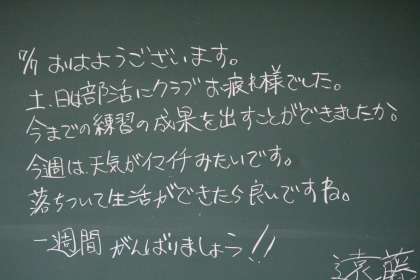 7/7 おはようございます。
土、日は部活にクラブお疲れ様でした。
今までの練習の成果を出すことができましたか。
今週は天気がイマイチみたいです。
落ちついて生活ができたら良いですね。
一週間 がんばりましょう!!
遠藤